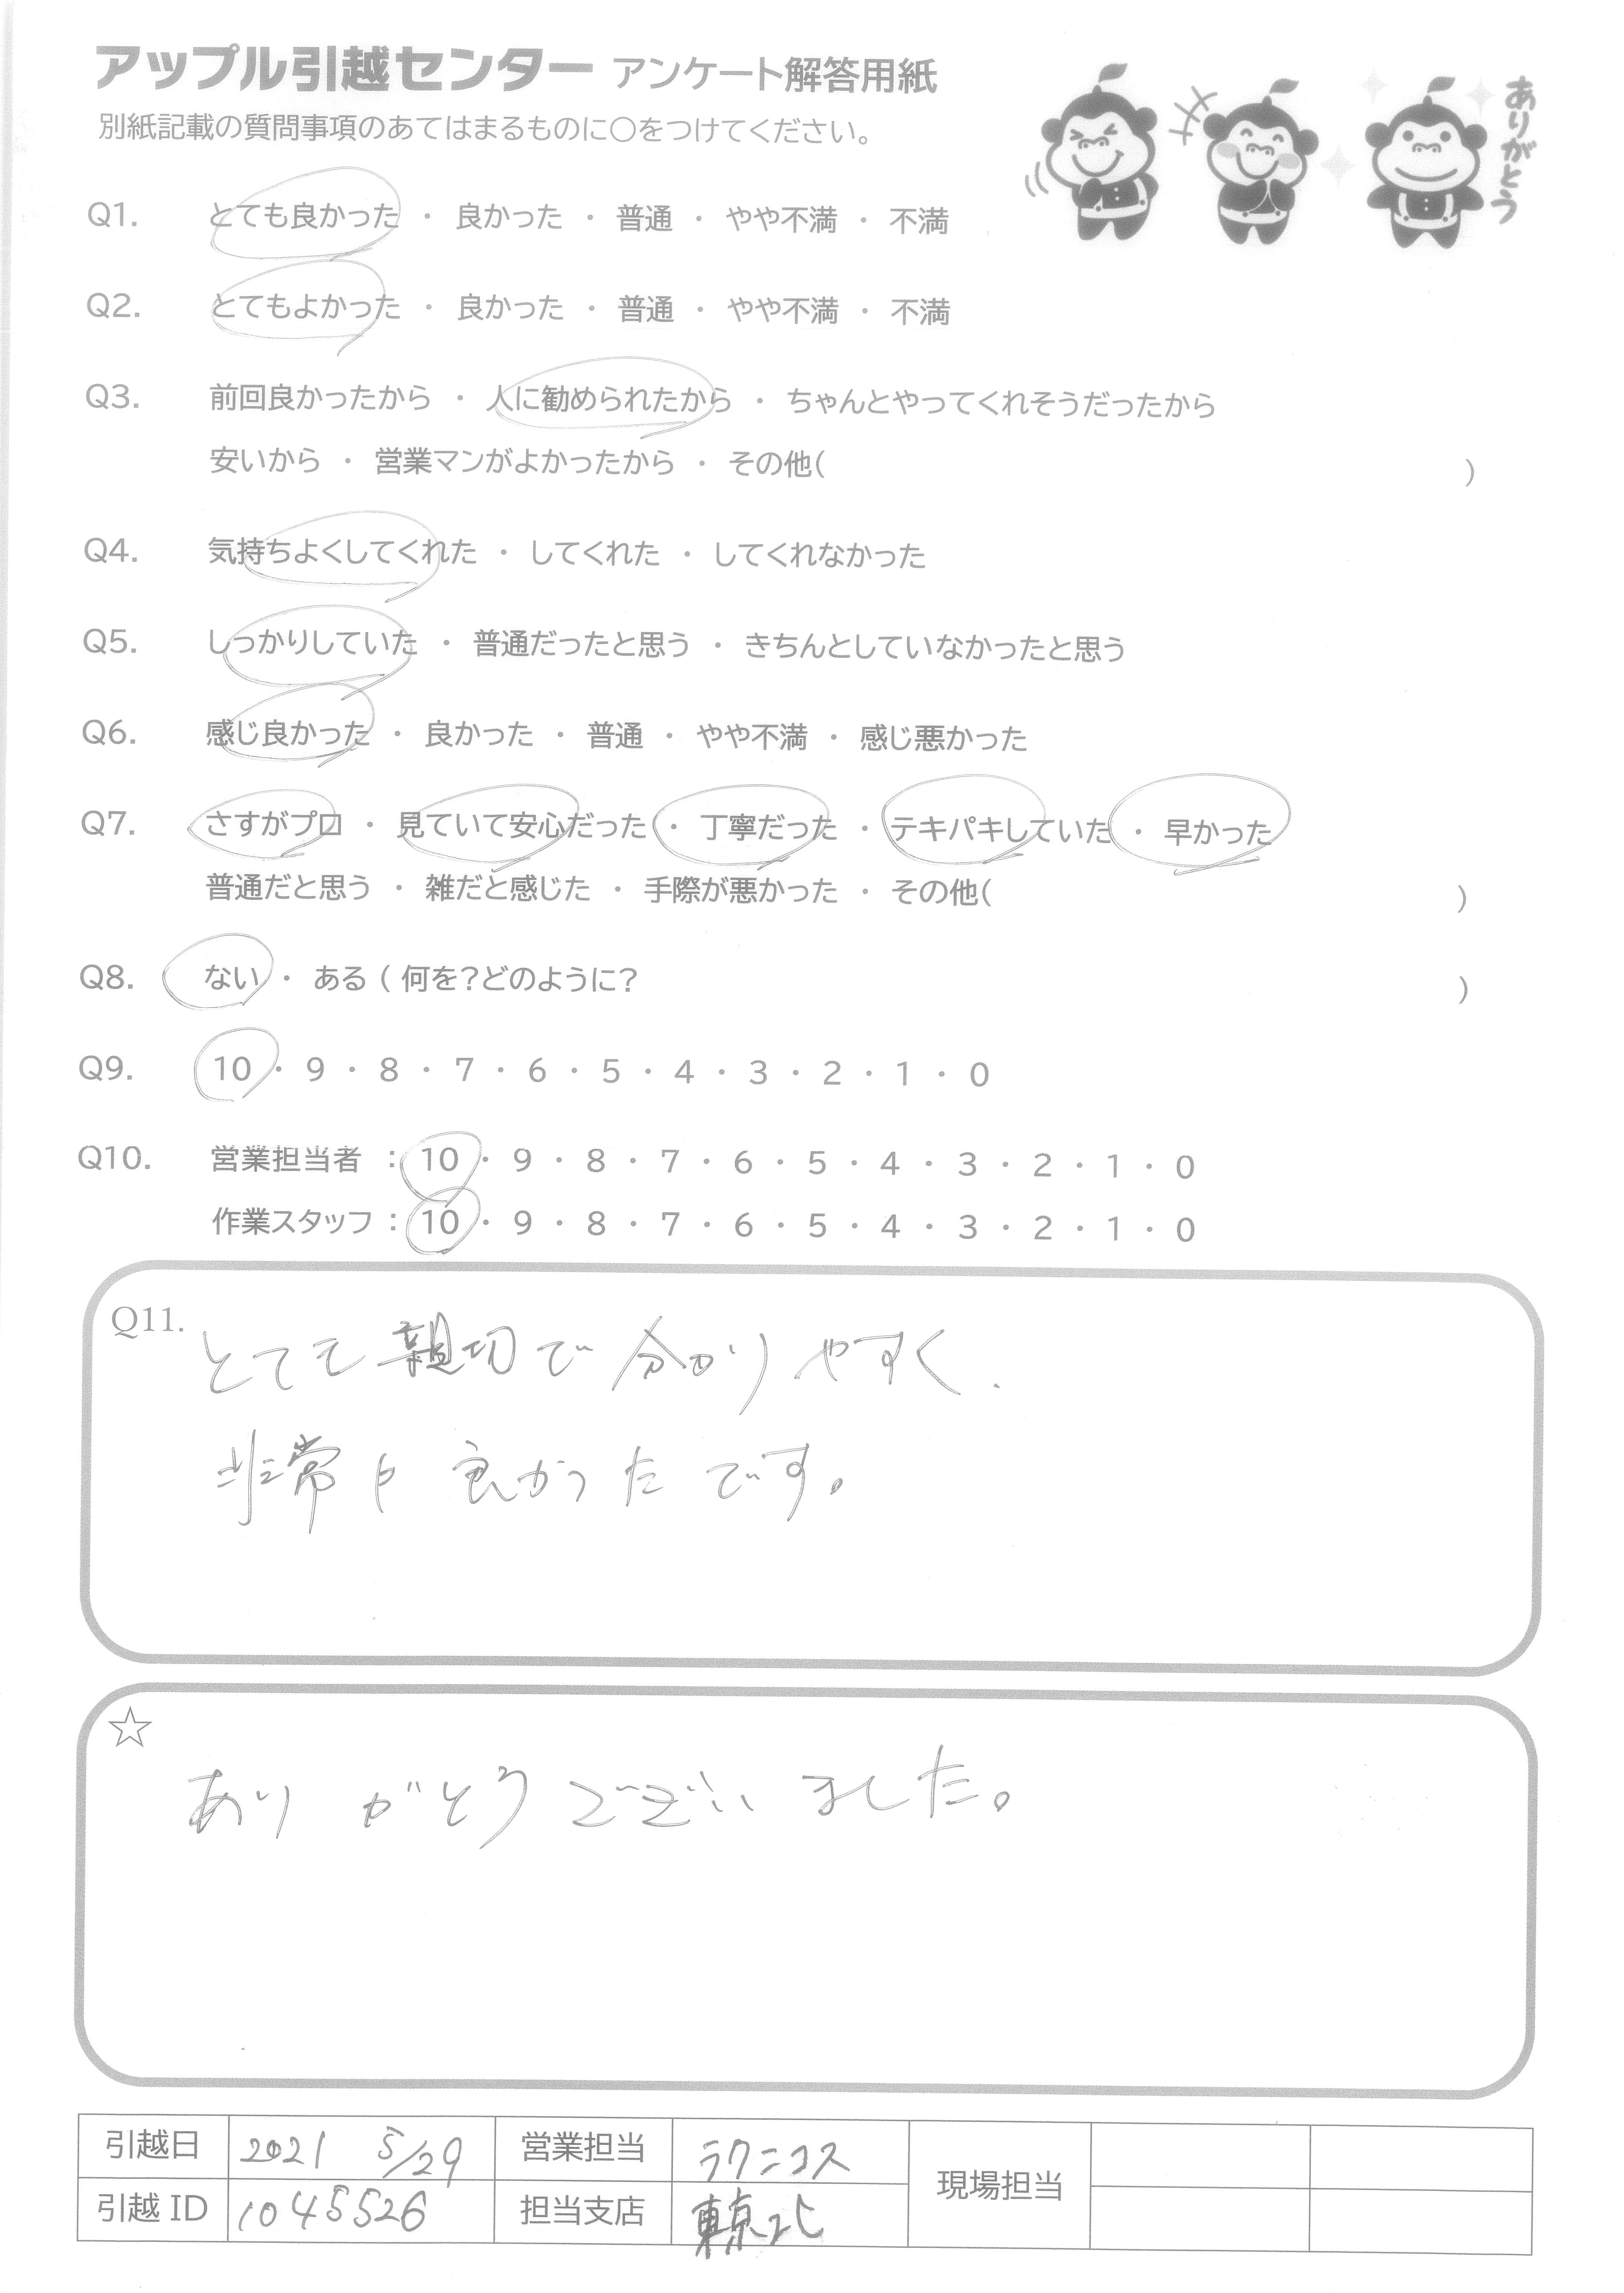 アップル引越センター アンケート解答用紙
別紙記載の質問事項のあてはまるものに○をつけてください。
ありがとう
Q1. とても良かった ・ 良かった ・ 普通 ・ やや不満 ・ 不満
Q2. とてもよかった ・ 良かった ・ 普通 ・ やや不満 ・ 不満
Q3. 前回良かったから ・ 人に勧められたから ・ ちゃんとやってくれそうだったから
安いから ・ 営業マンがよかったから ・ その他( )
Q4. 気持ちよくしてくれた ・ してくれた ・ してくれなかった
Q5. しっかりしていた ・ 普通だったと思う ・ きちんとしていなかったと思う
Q6. 感じ良かった ・ 良かった ・ 普通 ・ やや不満 ・ 感じ悪かった
Q7. さすがプロ ・ 見ていて安心だった ・ 丁寧だった ・ テキパキしていた ・ 早かった
普通だと思う ・ 雑だと感じた ・ 手際が悪かった ・ その他( )
Q8. ない ・ ある ( 何を?どのように? )
Q9. 10 ・ 9 ・ 8 ・ 7 ・ 6 ・ 5 ・ 4 ・ 3 ・ 2 ・ 1 ・ 0
Q10. 営業担当者 : 10 ・ 9 ・ 8 ・ 7 ・ 6 ・ 5 ・ 4 ・ 3 ・ 2 ・ 1 ・ 0
作業スタッフ : 10 ・ 9 ・ 8 ・ 7 ・ 6 ・ 5 ・ 4 ・ 3 ・ 2 ・ 1 ・ 0
Q11. とても親切で分かりやすく、
非常に良かったです。
☆
ありがとうございました。
引越日 2021 5/29 営業担当 ラクニコス 現場担当
引越 ID 1045526 担当支店 東京北